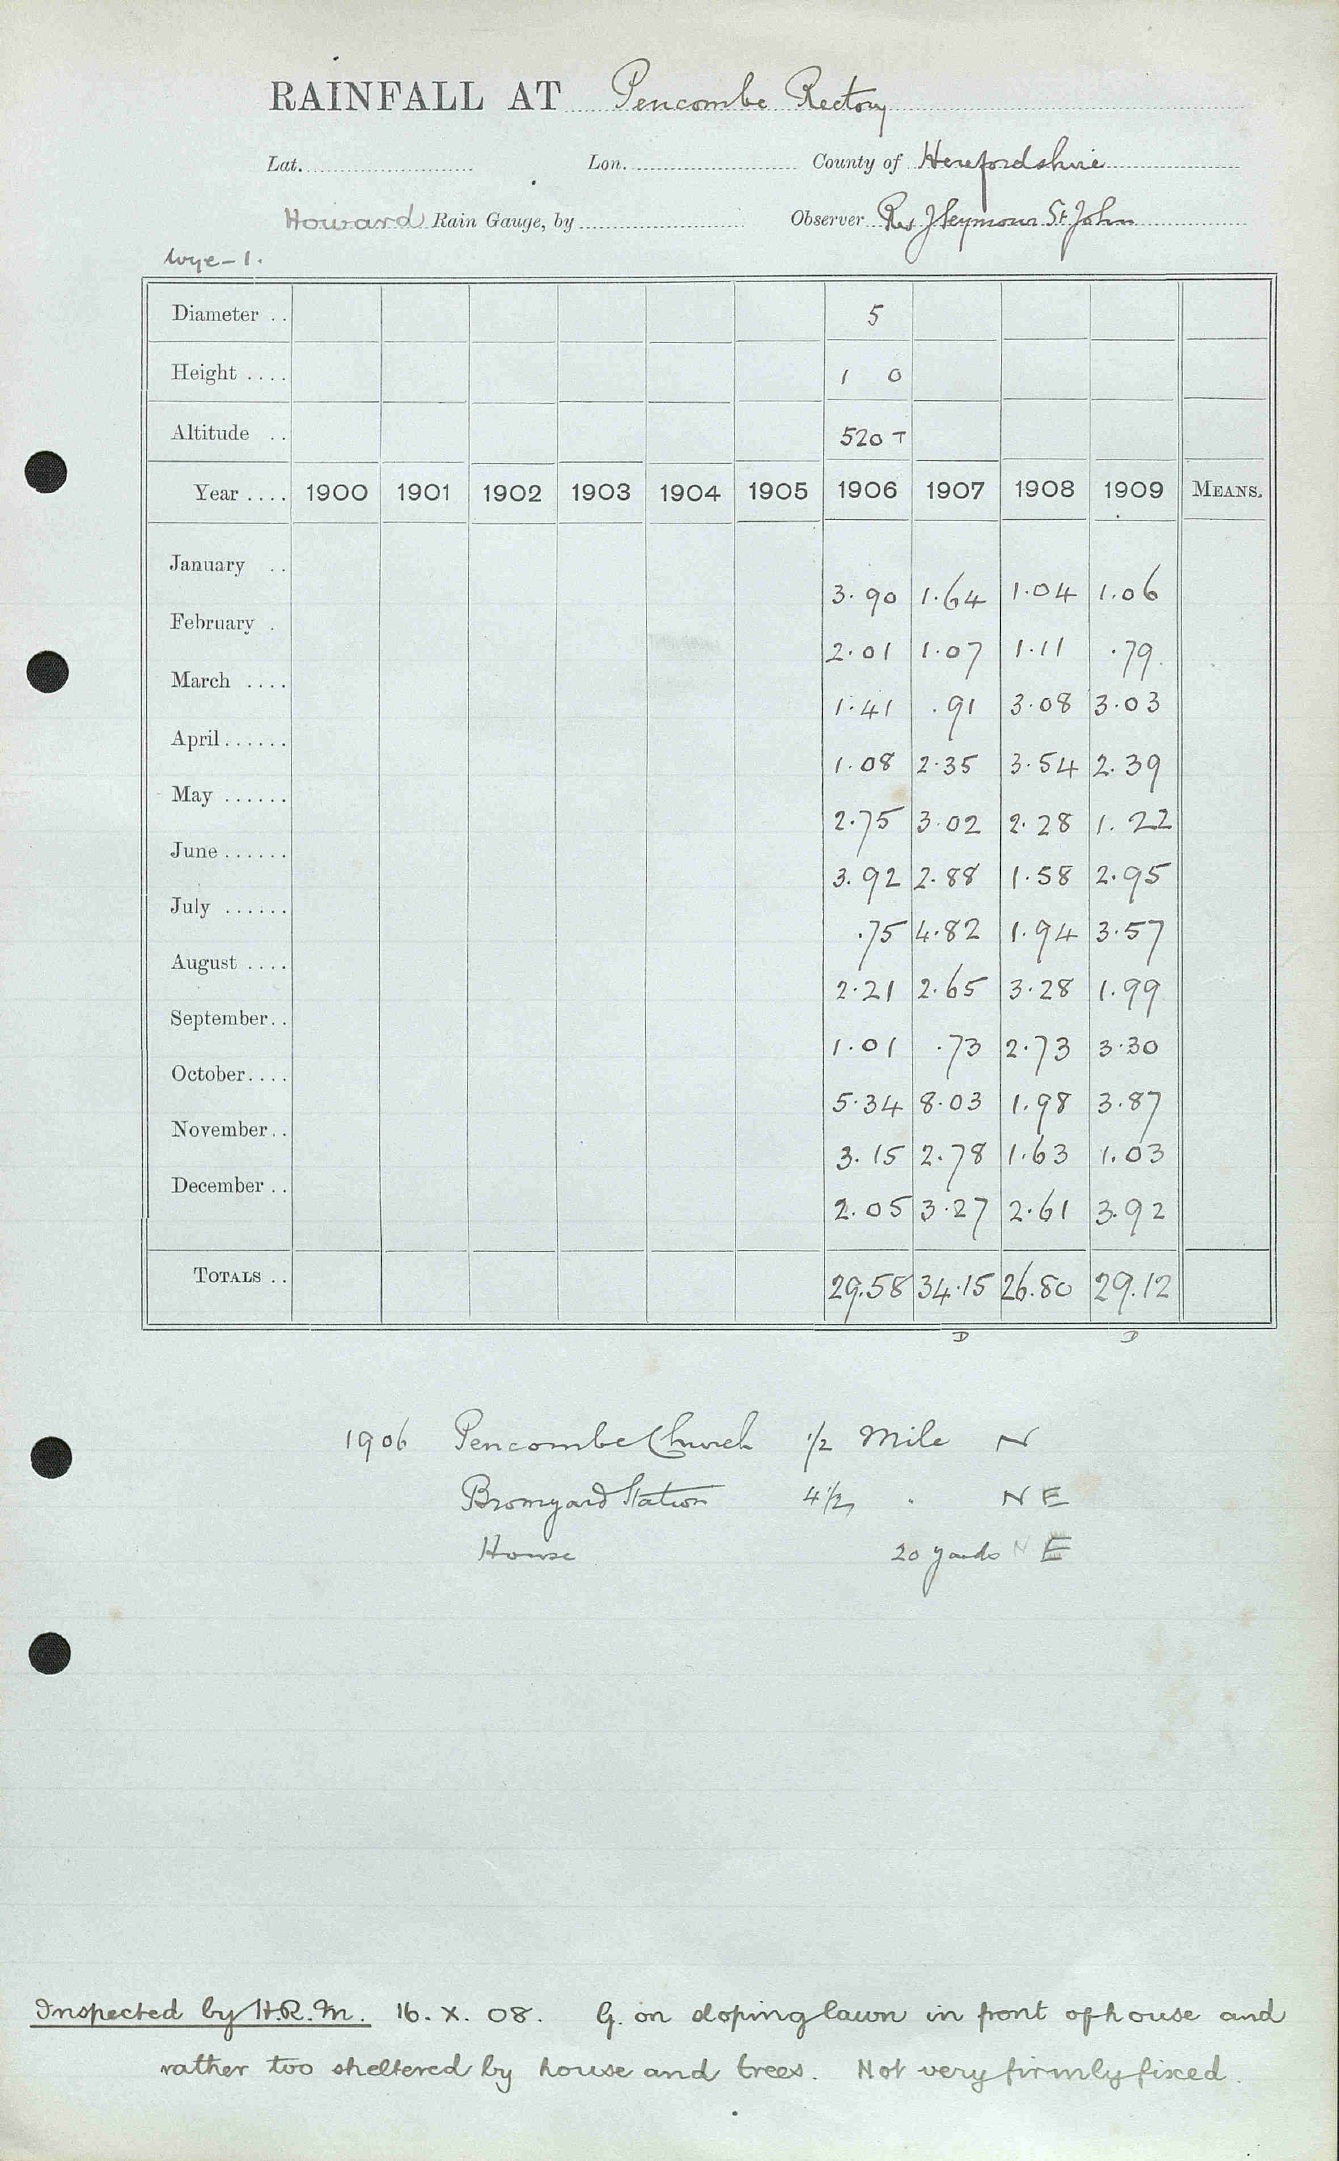 RAINFALL AT Pencombe Rectory
Lat. Lon. County of Herefordshire
Howard Rain Gauge, by Observer Rev J Seymour St John
Wye - 1.
Diameter .. 5
Height .... 1 0
Altitude .. 520 T
Year .... 1900 1901 1902 1903 1904 1905 1906 1907 1908 1909 MEANS.
January .. 3.90 1.64 1.04 1.06
February . 2.01 1.07 1.11 .79
March .... 1.41 .91 3.08 3.03
April ...... 1.08 2.35 3.54 2.39
May ...... 2.75 3.02 2.28 1.22
June ...... 3.92 2.88 1.58 2.95
July ...... .75 4.82 1.94 3.57
August .... 2.21 2.65 3.28 1.99
September.. 1.01 .73 2.73 3.30
October.... 5.34 8.03 1.98 3.87
November.. 3.15 2.78 1.63 1.03
December .. 2.05 3.27 2.61 3.92
TOTALS .. 29.58 34.15 26.80 29.12
D D
1906 Pencombe Church 1/2 Mile N
Bromyard Station 4 1/2 " N E
House 20 yards N E
Inspected by H.R.M. 16. X. 08. G. on sloping lawn in front of house and
rather too sheltered by house and trees. Not very firmly fixed.